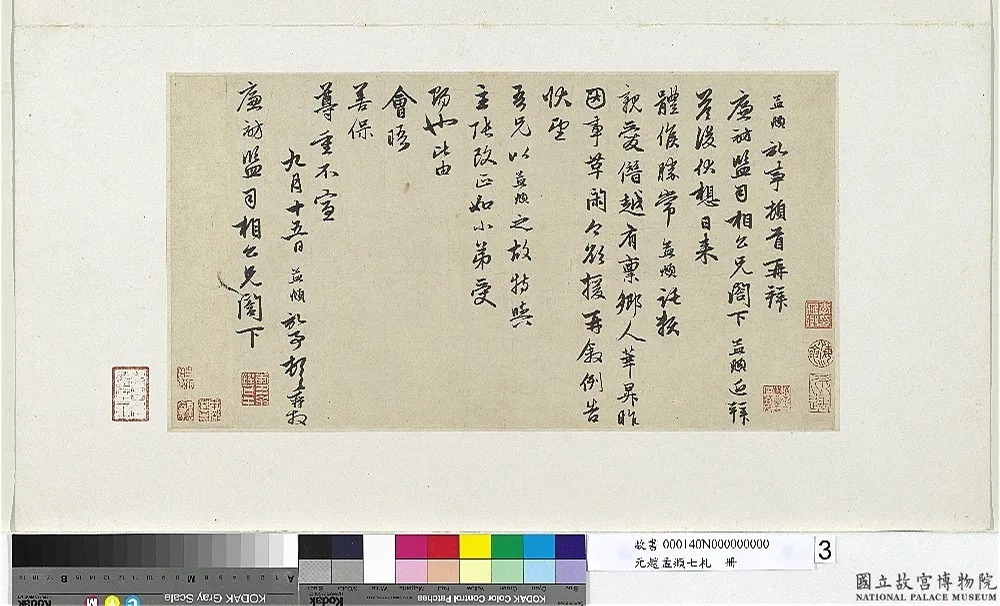 孟頫記事頓首再拜
廉訪監司相公兄閣下孟頫近拜
答後伏想日來
體候勝常孟頫託契
親愛僭越有稟鄉人華昇昨
因事革閑今欲援再敘例告
吾兄以孟頫之故特與
主張改正如小弟受
賜也此由
會晤
善保
尊重不宣
九月十五日孟頫記事頓首再拜
廉訪監司相公兄閣下
故書 000140N000000000
元趙孟頫七札 冊
3
國立故宮博物院
NATIONAL PALACE MUSEUM
KODAK Gray Scale
KODAK Color Control Patches
Kodak